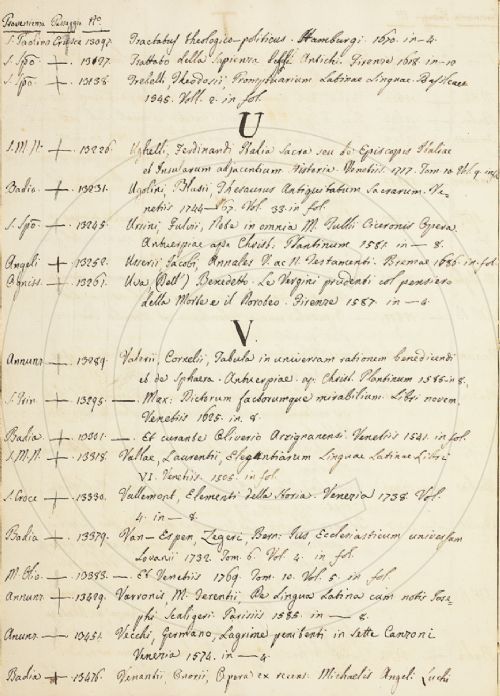 Provenienza Palaggio N.°
S. Paolino Eresice 13097. Tractatus theologico-politicus. Hamburgi. 1670. in - 4.
S. Spō. + 13127. Trattato della Sapienza degli Antichi. Firenze 1618 in - 10
S. Spō. + 13138. Trebelli, Theodosii Promptuarium Latinae Linguae. Basileae
1545. Voll. 2. in fol.
U
S.M.N. + 13226. Ughelli, Ferdinandi Italia Sacra seu de Episcopis Italiae
et Insularum adjacentium. Historia. Venetiis. 1717. Tom. 10. Vol. 9. in fol.
Badia + 13231. Ugolini, Blasii, Thesaurus Antiquitatum Sacrarum. Ve-
netiis 1744 - 67. Vol. 33. in fol.
S. Spō. + 13245. Ursini, Fulvii, Notae in omnia M. Tullii Ciceronis Opera.
Antuerpiae apud Christ. Plantinum 1581. in - 8.
Angeli + 13252. Usserii Jacobi, Annales V. ac N. Testamenti. Bremae 1686. in - fol.
Ogniss. + 13261. Uva, (Dell') Benedetto. Le Vergini prudenti col pensiero
della Morte e il Doroteo. Firenze 1587. in - 4.
V.
Annunz. + 13289. Valerii, Cornelii, Tabula in universam rationem benedicendi
et de Sphaera. Antuerpiae. ap. Christ. Plantinum 1585. in 8.
S. Trin. + 13295. — Max: Dictorum factorumque mirabilium. Libri novem.
Venetiis 1625. in. 8.
Badia + 13301. — Et curante Oliverio Arzignanensi. Venetiis 1541. in fol.
S.M.N. + 13318. Vallae, Laurentii, Elegantiarum Linguae Latinae Libri
VI. Venetiis. 1505. in fol.
S. Croce + 13330. Vallemont, Elementi della Storia. Venezia 1738 Vol.
4. in - 8.
Badia + 13379. Van - Espen, Zegeri, Bern: Ius, Ecclesiasticum universam
Lovanii 1732. Tom. 6. Vol 4. in fol.
M. Oliv. + 13383. — Et Venetiis 1769. Tom. 10. Vol. 5. in fol.
Annunz. + 13429. Varronis, M. Terentii, De Lingua Latina cum notis Jose-
phi Scaligeri. Parisiis 1585. in - 8.
Anunz. + 13451. Vecchi, Germano, Lagrime penitenti in Sette Canzoni
Venezia 1574. in - 4.
Badia + 13476. Venantii, Onorii, Opera ex recens: Michaelis Angeli Luchi